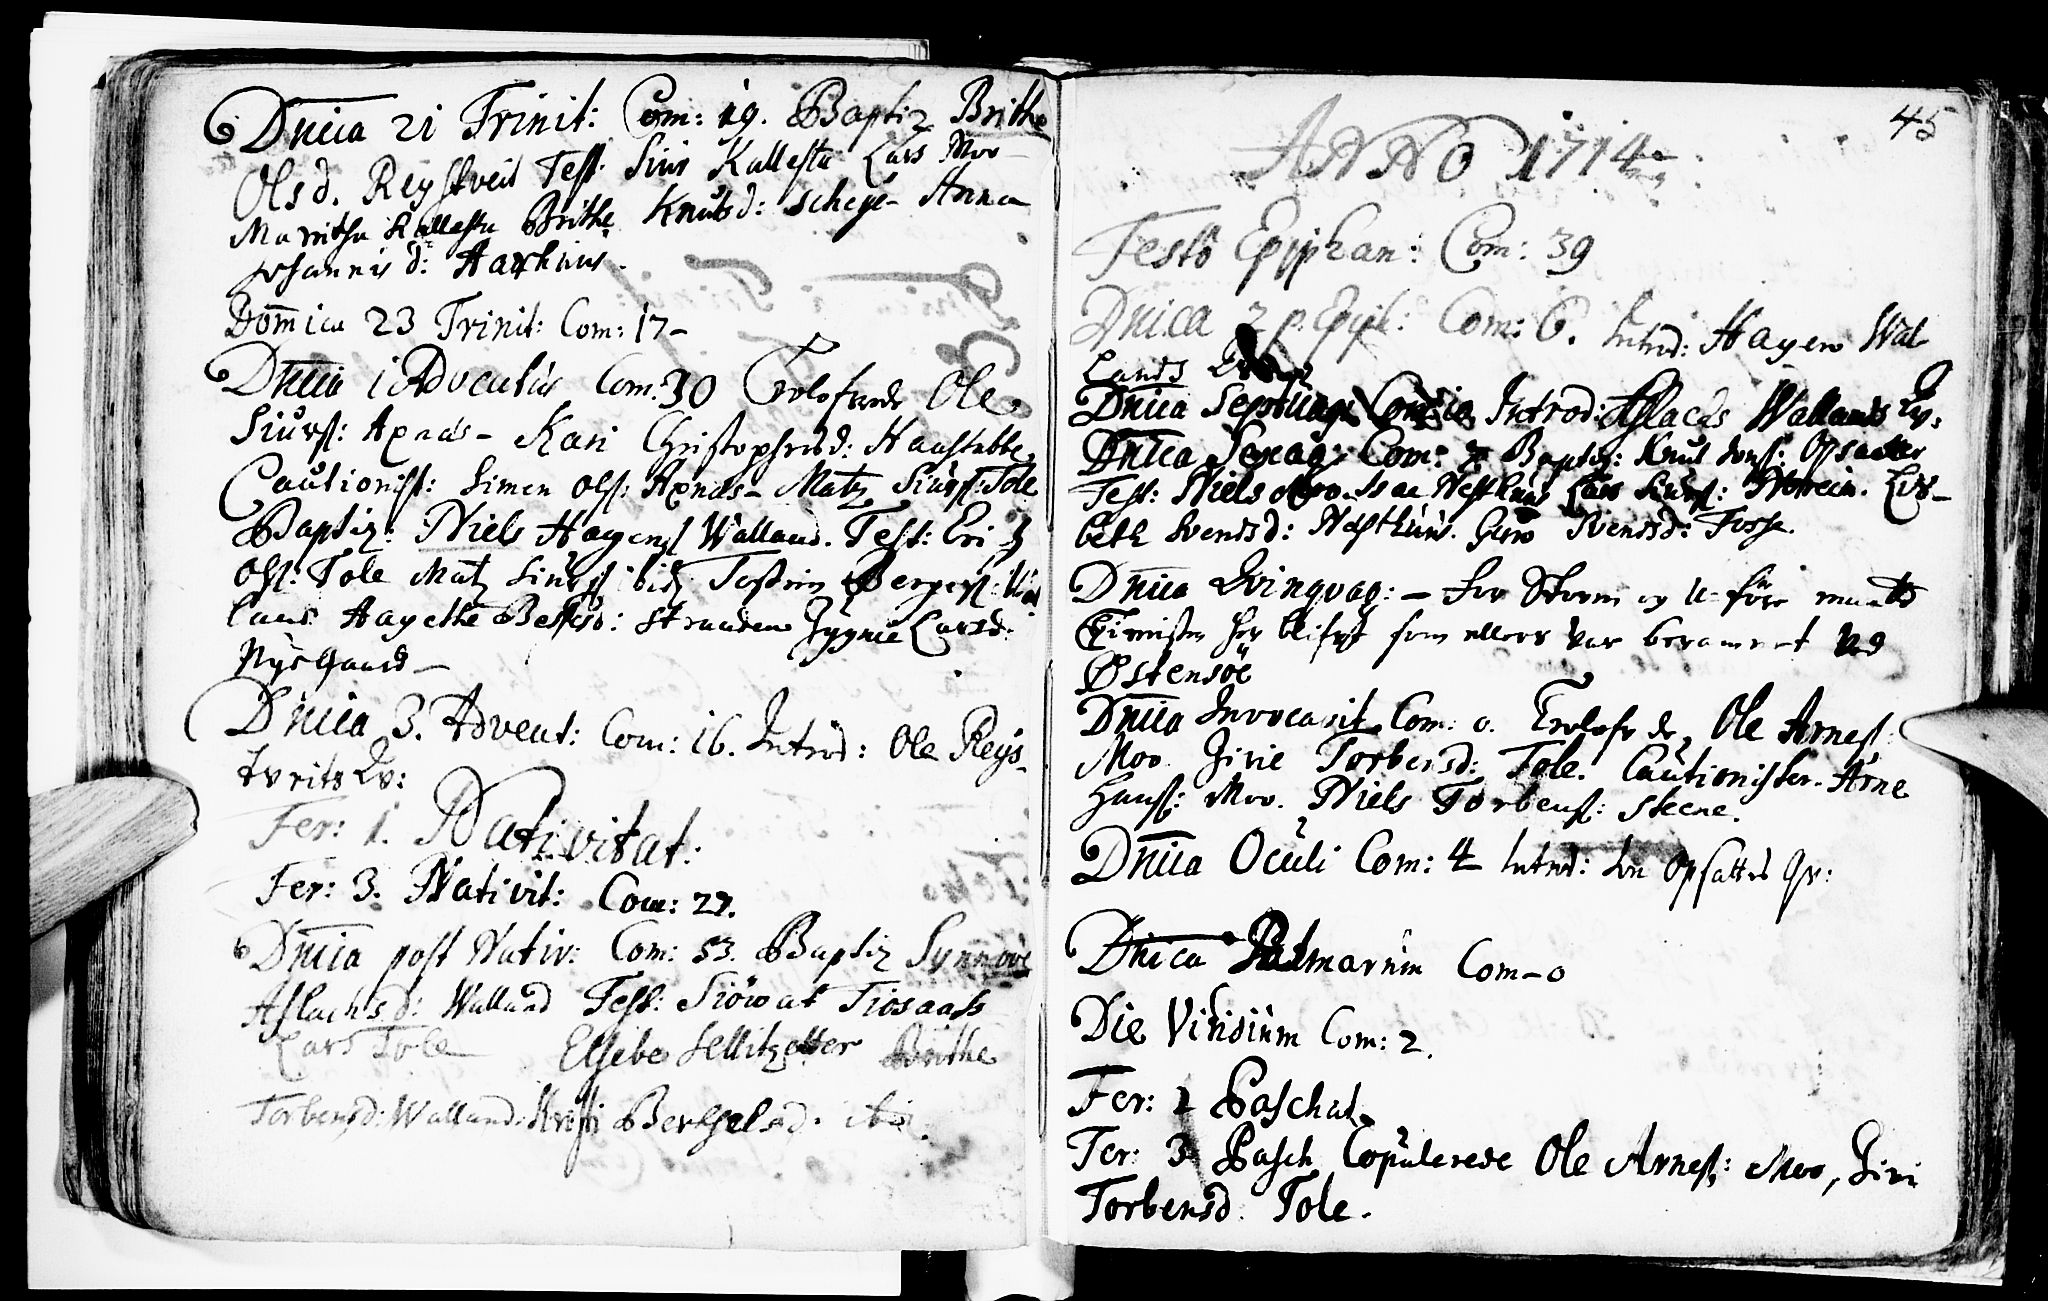 Dnica 21 Trinit: Com: 19. Baptiz Brithe
Olsd. Reystveit Test: Siur Kallestu Lars Moo
Maritha Kallestu Brithe Knutsd: Scheye Anna
Johannis d:
Domica 23 Trinit: Com: 17-
Dnica 1 Adventus Com. 30 Trolofvede Ole
Siurs: Axnæs- Kari Christophersd: Haastabbe
Cautionist: Simen Ols: Axnæs- Matz Siurs: Tole
Baptiz: Niels Hagens Walland. Test: Erich
Ols: Tole Matz Siurs ibid Torstein Bergers:
land Aagethe Stranden Jygnie Larsd:
Nysgaard-
Dnica 3. Advent: Com: 16. Introd: Ole Reys-
tveits Qv:
Fer: 1. Nativitat:
Fer: 3. Nativit: Com: 22.
Dnica post Nativ: Com: 53. Baptiz Synnove
Aslachsd: Walland Test: Siówat Tiosaas
Lars Tole Elsebe Sellitzetter Brithe
Torbensd: Walland. Kristi Berthelsd. ibid.
45
ANNO 1714
Festo Epiphan: Com: 39
Dnica 2 p. Epiph: Com: 6. Introd: Hagen Wal-
lands
Dnica Septuag: Com: Introd: Aslacks Wallands Qv:
Dnica Sexag: Com: Baptiz: Knut Jons: Opsætter
Test: Niels Moo. Isac Nesthus Lars Siurs: Noreim. Lis-
beth Svendsd: Nesthus. Guro Svendsd: Fosse.
Dnica Qvinqvag: - For Storm og U-före maatte
Tienisten her som ellers var berammet ved
Østensöe
Dnica Invocavit Com: 0. Trolofvede Ole Arnes:
Moo. Zirie Torbensd: Tole. Cautionister. Arne
Hans: Moo. Niels Torbens: Steene.
Dnica Oculi Com: 4 Introd: Jon Opsætters Qv:
Dnica Palmarum Com-0
Die Viridium Com: 2.
Fer: 1 Paschat.
Fer: 3 Pasch Copulerede Ole Arnes: Moo, Ziri
Torbensd. Tole.